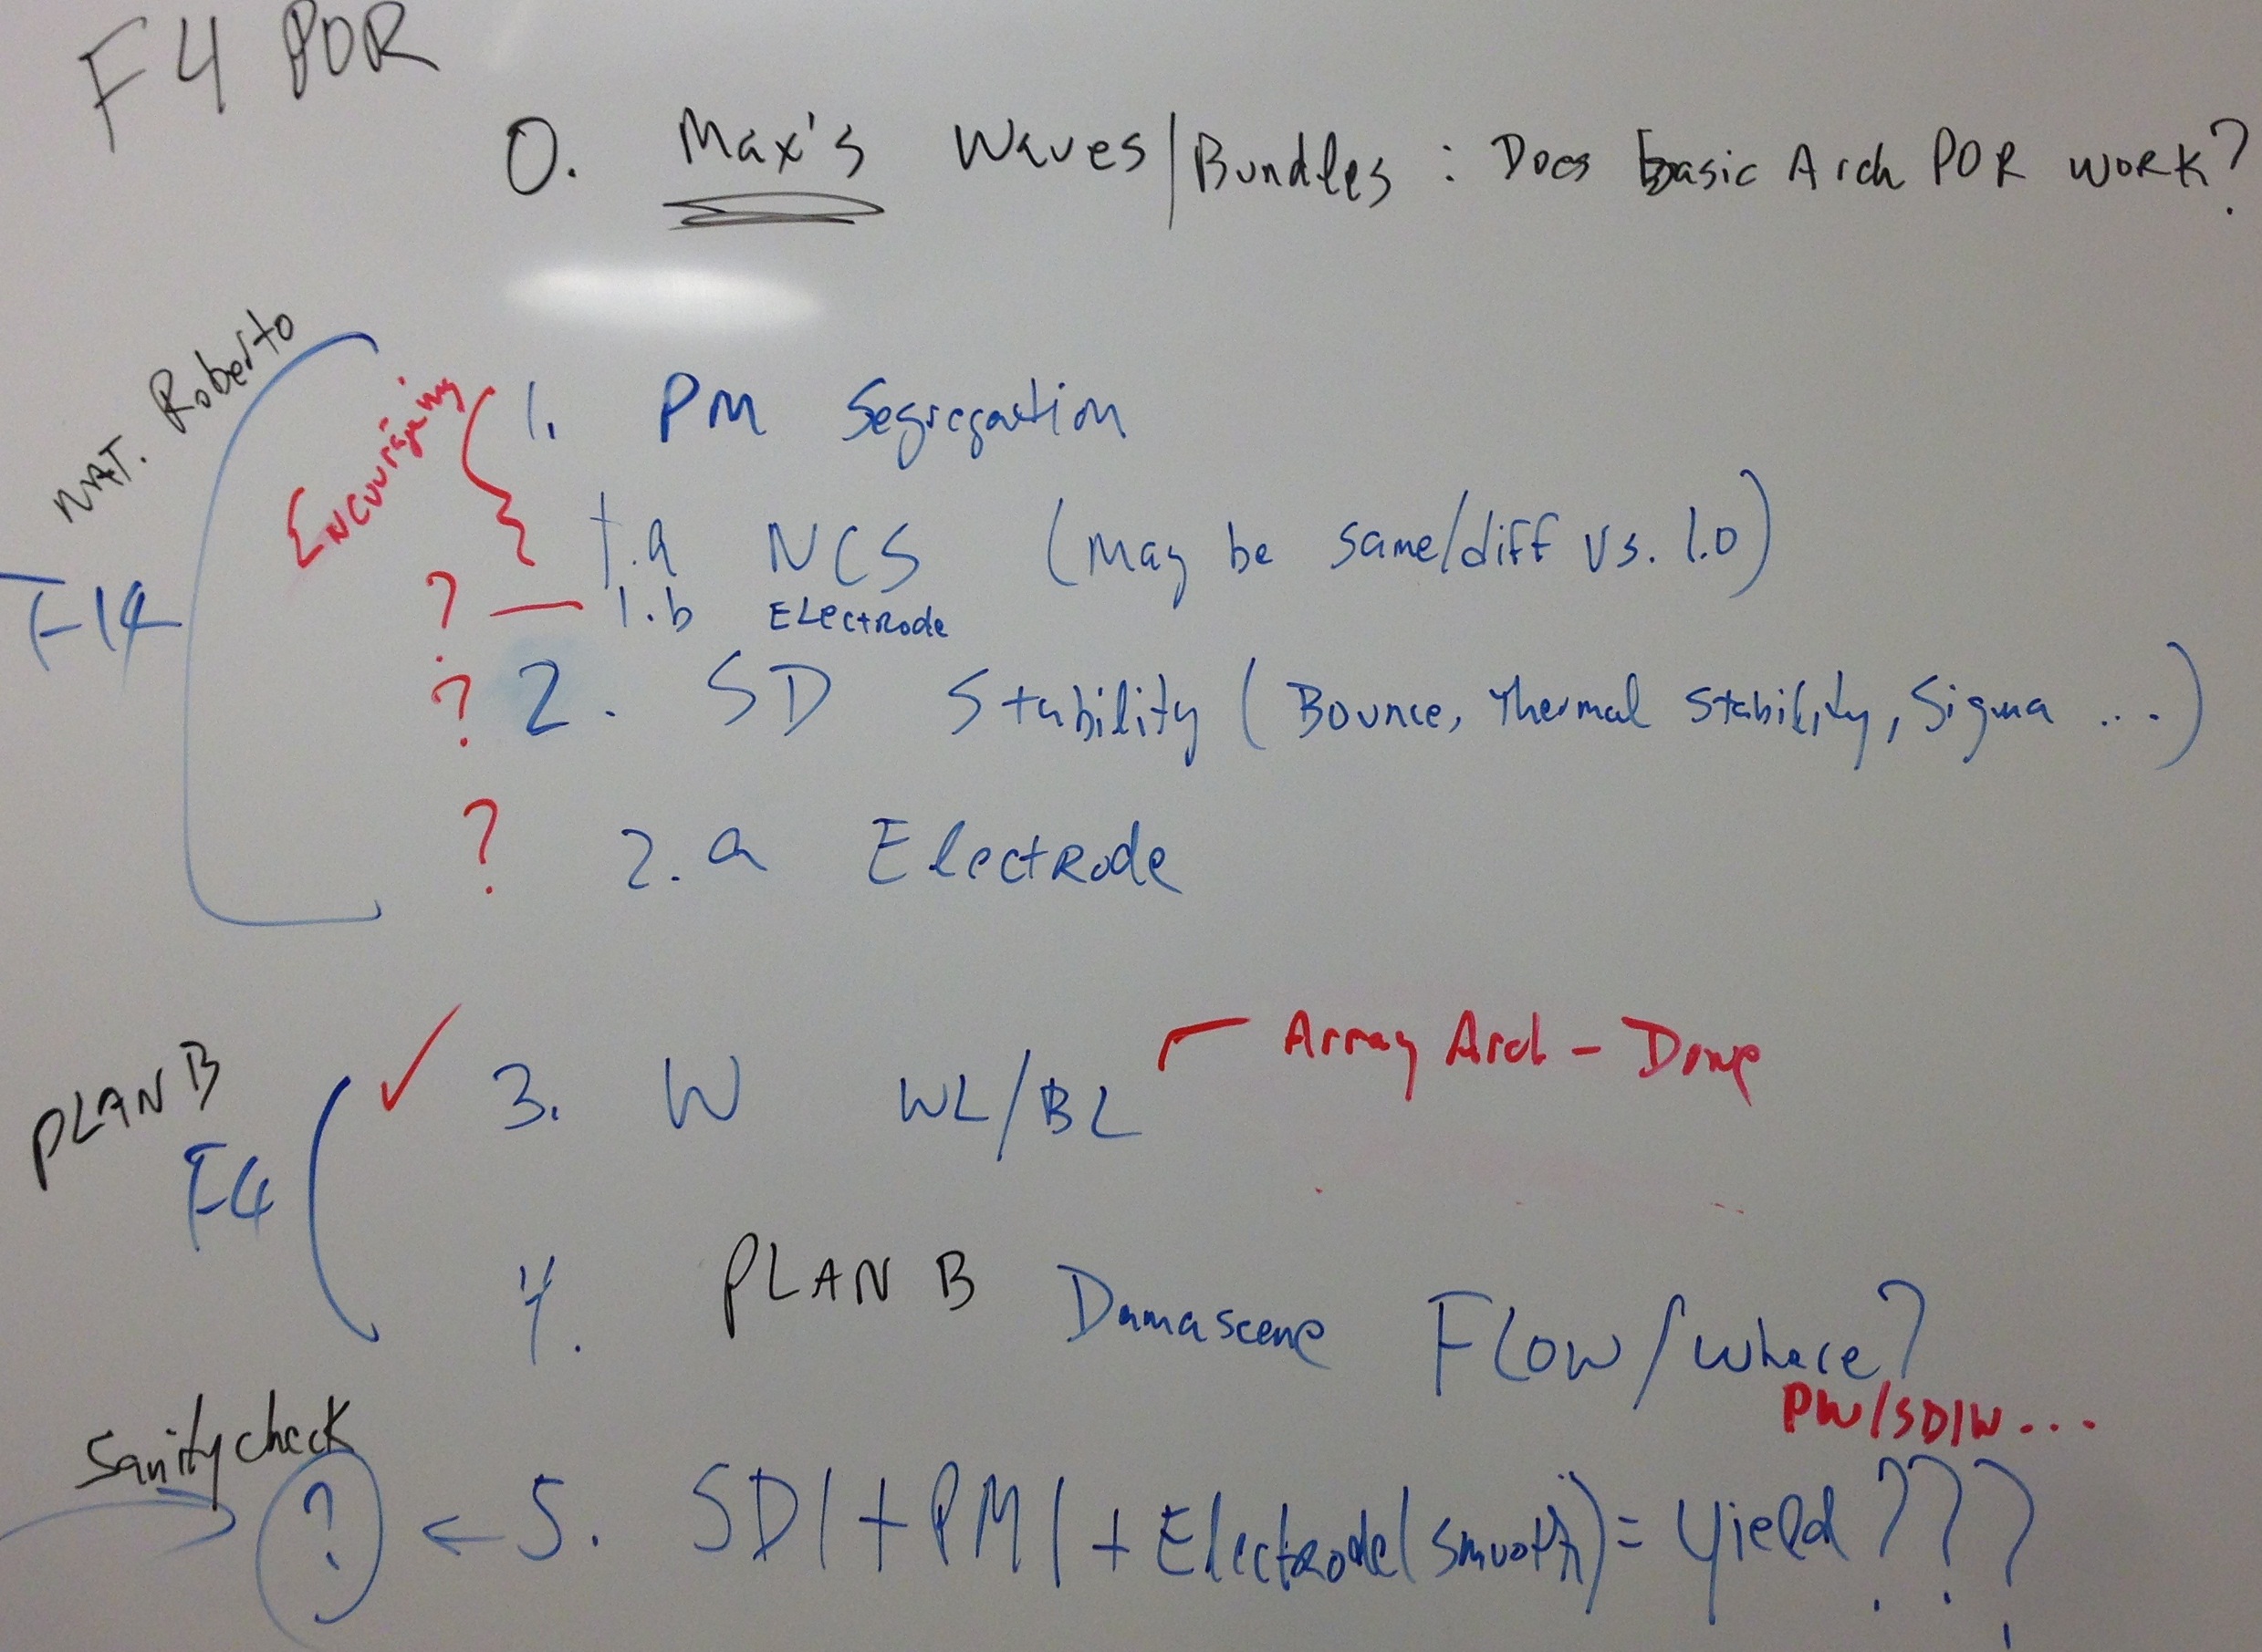 F4 POR
0. Max's Waves/Bundles : Does basic Arch POR work?
MAT. Roberto
Encouraging
1. PM Segregation
1.a NCS (may be same/diff vs. 1.0)
F14
? — 1.b Electrode
? 2. SD Stability (Bounce, Thermal Stability, Sigma ...)
? 2.a Electrode
Array Arch - Done
PLAN B
✓ 3. W WL/BL
F4
4. PLAN B Damascene Flow/where?
PM/SD/W...
Sanity check
? ← 5. SD/+PM/+Electrode(smooth) = Yield???